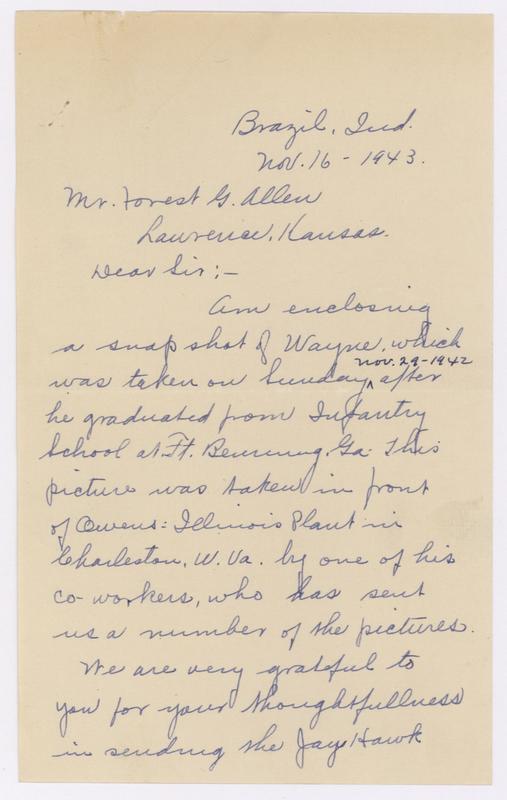 Brazil, Ind.
Nov. 16 - 1943.
Mr. Forest G. Allen
Lawrence, Kansas.
Dear Sir; -
Am enclosing
a snap shot of Wayne, which
was taken on Sunday, Nov. 29-1942 after
he graduated from Infantry
School at Ft. Benning, Ga. This
picture was taken in front
of Owens-Illinois Plant in
Charleston, W. Va. by one of his
co-workers, who has sent
us a number of the pictures.
We are very grateful to
you for your thoughtfullness
in sending the Jay Hawk